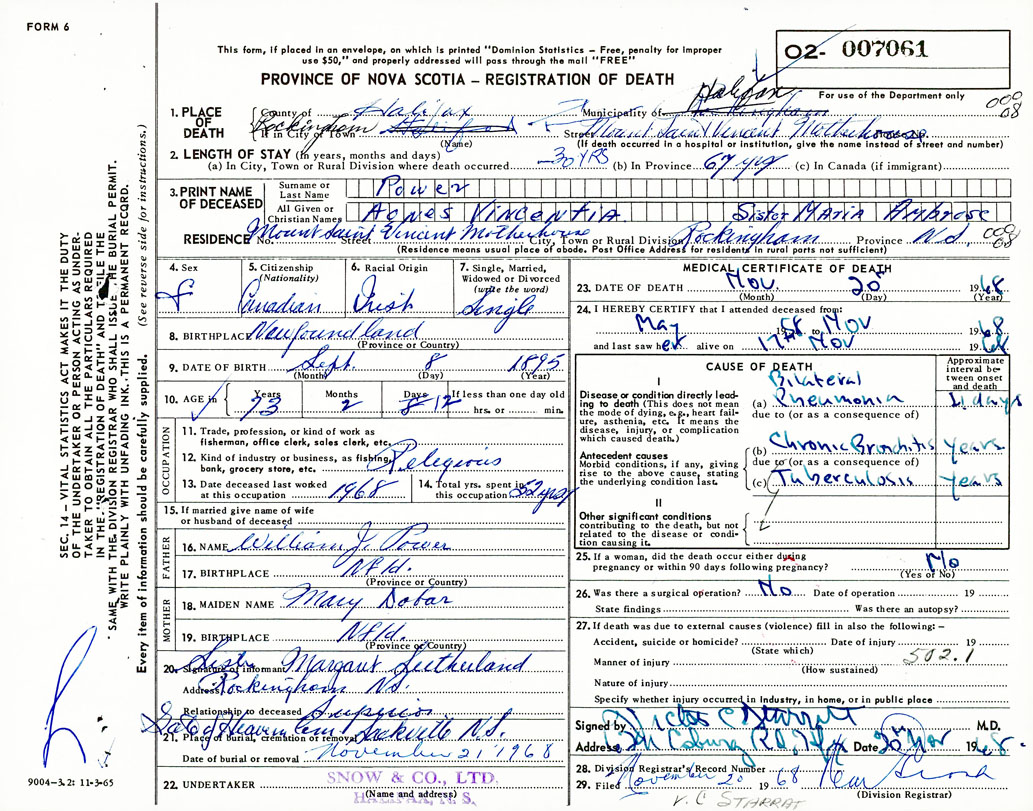 FORM 6
This form, if placed in an envelope, on which is printed "Dominion Statistics – Free, penalty for improper
use $50," and properly addressed will pass through the mail "FREE"
PROVINCE OF NOVA SCOTIA – REGISTRATION OF DEATH
02- 007061
For use of the Department only
000
08
1. PLACE OF DEATH
County of Halifax Municipality of Halifax
If in City or Town Rockingham Halifax Street Mount Saint Vincent Motherhouse
(Name) (If death occurred in a hospital or institution, give the name instead of street and number)
2. LENGTH OF STAY (in years, months and days)
(a) In City, Town or Rural Division where death occurred 30 YRS (b) In Province 67 yrs (c) In Canada (if immigrant)
3. PRINT NAME OF DECEASED
Surname or Last Name Power
All Given or Christian Names Agnes Vincentia Sister Maria Ambrose
RESIDENCE No. Mount Saint Vincent Motherhouse Street City, Town or Rural Division Rockingham Province N.S.
000
08
(Residence means usual place of abode. Post Office Address for residents in rural ports not sufficient)
4. Sex F
5. Citizenship (Nationality) Canadian
6. Racial Origin Irish
7. Single, Married, Widowed or Divorced (write the word) Single
8. BIRTHPLACE Newfoundland
(Province or Country)
9. DATE OF BIRTH Sept. 8 1895
(Month) (Day) (Year)
10. AGE in Years 73 Months 2 Days 12 If less than one day old hrs. or min.
OCCUPATION
11. Trade, profession, or kind of work as
fisherman, office clerk, sales clerk, etc.
12. Kind of industry or business, as fishing,
bank, grocery store, etc. Religious
13. Date deceased last worked
at this occupation 1968
14. Total yrs. spent in
this occupation 52 yrs
15. If married give name of wife
or husband of deceased
FATHER
16. NAME William J. Power
17. BIRTHPLACE Nfld.
(Province or Country)
MOTHER
18. MAIDEN NAME Mary Dobar
19. BIRTHPLACE Nfld.
(Province or Country)
20. Signature of informant Sister Margaret Sutherland
Address Rockingham N.S.
Relationship to deceased Superior
Gate of Heaven Cem. Sackville N.S.
21. Place of Burial, cremation or removal
Date of burial or removal November 21 1968
22. UNDERTAKER SNOW & CO., LTD.
HALIFAX, N. S.
(Name and address)
MEDICAL CERTIFICATE OF DEATH
23. DATE OF DEATH Nov. 20 1968
(Month) (Day) (Year)
24. I HEREBY CERTIFY that I attended deceased from:
May 1958 to Nov 1968
and last saw her alive on 17th Nov 1968
CAUSE OF DEATH
Approximate interval between onset and death
I
Disease or condition directly leading to death (This does not mean the mode of dying, e.g., heart failure, asthenia, etc. It means the disease, injury, or complication which caused death.)
Bilateral
(a) Pneumonia 11 days
due to (or as a consequence of)
Antecedent causes
Morbid conditions, if any, giving rise to the above cause, stating the underlying condition last.
(b) Chronic Bronchitis years
due to (or as a consequence of)
(c) Tuberculosis years
II
Other significant conditions
contributing to the death, but not related to the disease or condition causing it.
25. If a woman, did the death occur either during
pregnancy or within 90 days following pregnancy? No
(Yes or No)
26. Was there a surgical operation? No Date of operation 19
State findings Was there an autopsy?
27. If death was due to external causes (violence) fill in also the following: –
Accident, suicide or homicide? Date of injury 19
(State which) 502.1
Manner of injury
(How sustained)
Nature of injury
Specify whether injury occurred in Industry, in home, or in public place
Signed by Victor C Starratt M.D.
Address Coburg Rd, Hfx Date 20 Nov 1968
28. Division Registrar's Record Number
29. Filed November 20 1968
(Division Registrar)
V. C STARRAT
SEC. 14 – VITAL STATISTICS ACT MAKES IT THE DUTY
OF THE UNDERTAKER OR PERSON ACTING AS UNDER-
TAKER TO OBTAIN ALL THE PARTICULARS REQUIRED
IN THE "REGISTRATION OF DEATH" AND TO FILE THE
SAME WITH THE DIVISION REGISTRAR WHO SHALL ISSUE THE BURIAL PERMIT.
WRITE PLAINLY WITH UNFADING INK. THIS IS A PERMANENT RECORD.
Every item of information should be carefully supplied. (See reverse side for instructions.)
9004-3.2: 11-3-65